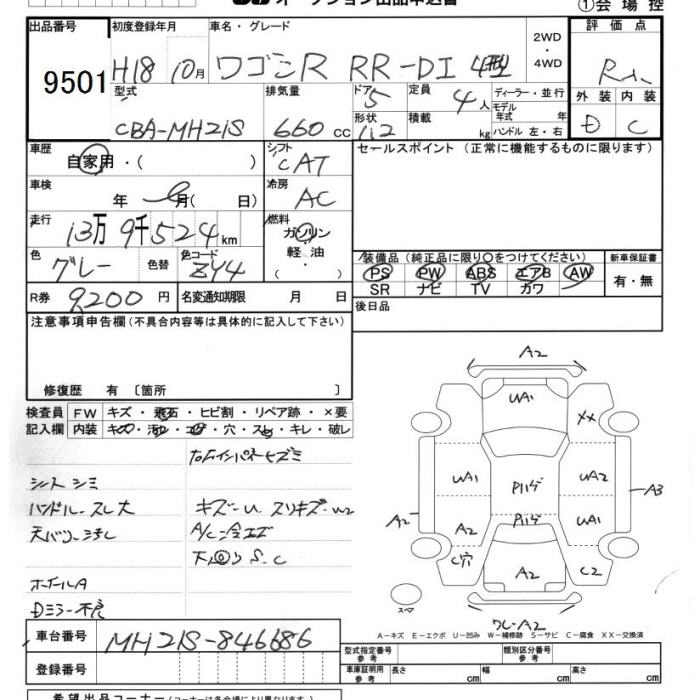 ①会場控
出品番号 初度登録年月 車名・グレード 2WD・4WD 評価点
9501 H18 10月 ワゴンR RR-DI 4型 R
型式 排気量 ドア 定員 ディーラー・並行
5 4人 モデル年式 年式
外装 内装
CBA-MH21S 660cc 形状 積載 kg ハンドル 左・右 D C
車歴 シフト セールスポイント(正常に機能するものに限ります)
自家用・( ) CAT
車検 冷房
年 月( 日) AC
走行 燃料
13万9千524km ガソリン
色 色替 色コード 軽油
グレー ZY4 ( )
装備品(純正品に限り○をつけてください) 新車保証書
PS PW ABS エアB AW 有・無
SR ナビ TV カワ
R券 9200円 名変通知期限 月 日 後日品
注意事項申告欄(不具合内容等は具体的に記入して下さい)
修復歴 有〔箇所 〕
検査員 FW キズ・飛石・ヒビ割・リペア跡・×要
記入欄 内装 キズ・汚・コゲ・穴・スレ・キレ・破レ
シートシミ
ハンドル-スレ大 キズ-U スリキズ-W2
A/C
S.C
ホイールA
Dミラー不良
A2
UA1 XX
UA1 Pハゲ UA2 A3
A2 A2 Pハゲ UA1
C穴 A2 C2
スペア
A2
A-キズ E-エクボ U-凹み W-補修跡 S-サビ C-腐食 XX-交換済
車台番号 MH21S-846686
登録番号
型式指定番号 参考 類別区分番号 参考
車庫証明用 参考 長さ cm 幅 cm 高さ cm
希望出品コーナー